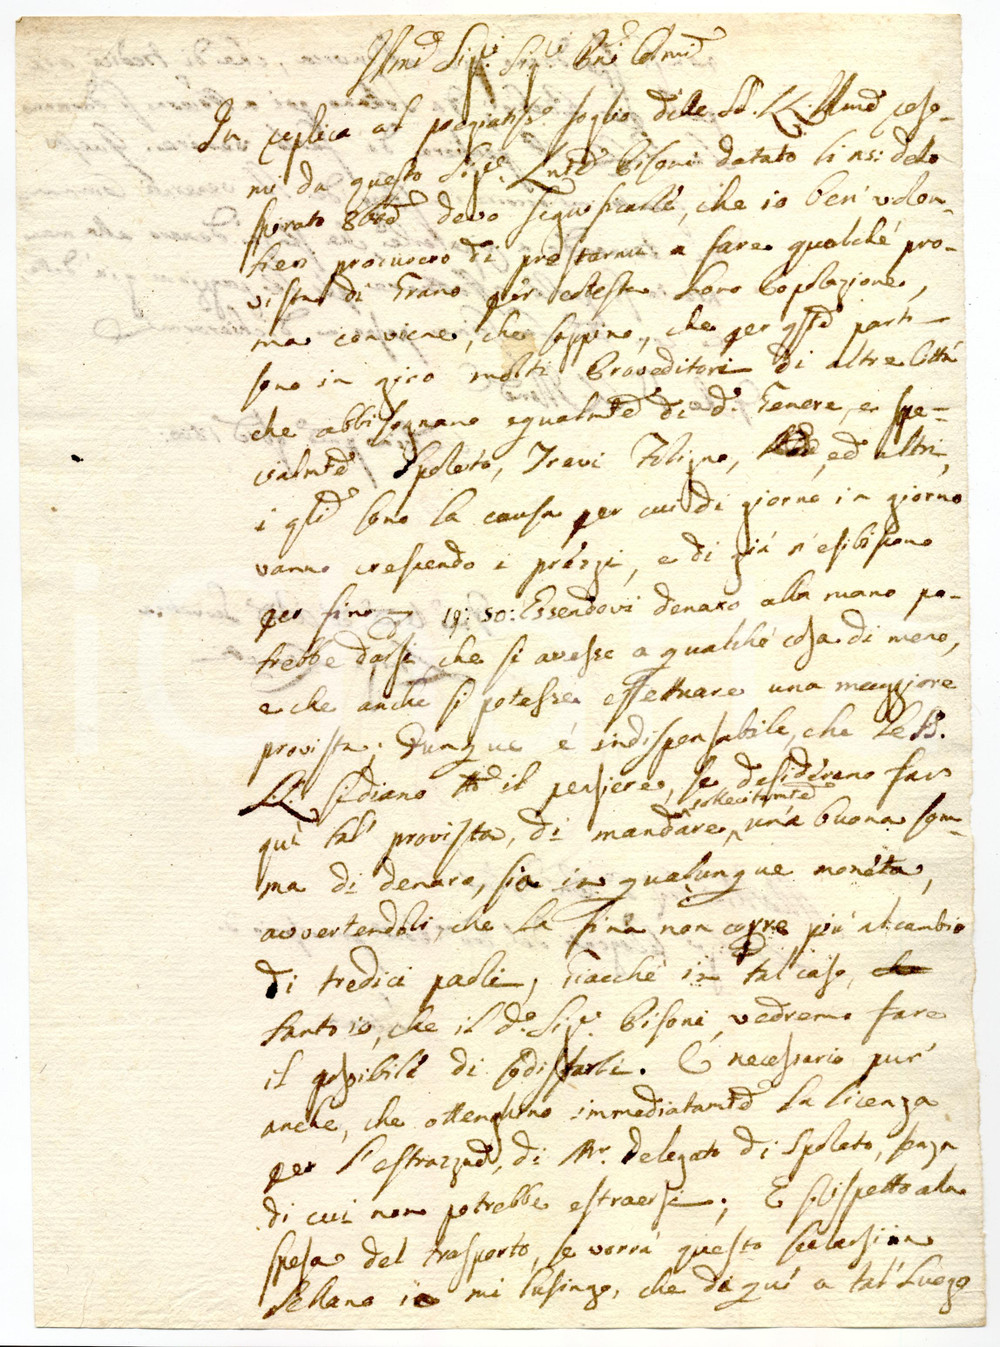 Illmi Sigri Sigri Pni Colmi
In replica al pregiatismo foglio delle SS. LL. Illme reso-
mi da questo Sigre Bisoni datato li 25: dello
spirato 8bre devo significarle, che io ben volon-
tieri procurerò di prestarmi a fare qualché pro-
vista di Grano per cotesta Loro Popolazione,
ma conviene, che sappino, che per qste parti
sono in giro molti Proveditori di altre Città
che abbisognano egualmte di do Genere, e spe-
cialmte Spoleto, Trevi Foligno, ed altri,
i qli sono la causa per cui di giorno in giorno
vanno crescendo i prezzi, e di già s'esibiscono
per fino 19: 50: Essendovi denaro alla mano po-
trebbe darsi che si avesse a qualché cosa di meno,
e che anche si potesse effettuare una maggiore
provista; Dunque é indispensabile, che le SS.
LL. si diano il pensiere, se desiderano far
quì tal' provista, di mandare sollecitamte una buona som-
ma di denaro, sia in qualunque monéta,
avvertendoli, che la fina non corre più al cambio
di tredici paoli, giacché in tal caso,
tanto io, che il do Sigre Bisoni vedremo fare
il possibile di sodisfarli. È necessario pur'
anche, che ottenghino immediatamte la licenza
per l'estrazzne, di Mr. Delegato di Spoleto, senza
di cui non potrebbe estraersi; E rispetto alla
spesa del trasporto, se vorrà questo farsi in
Sellano io mi lusingo, che di quì a tal' Luogo